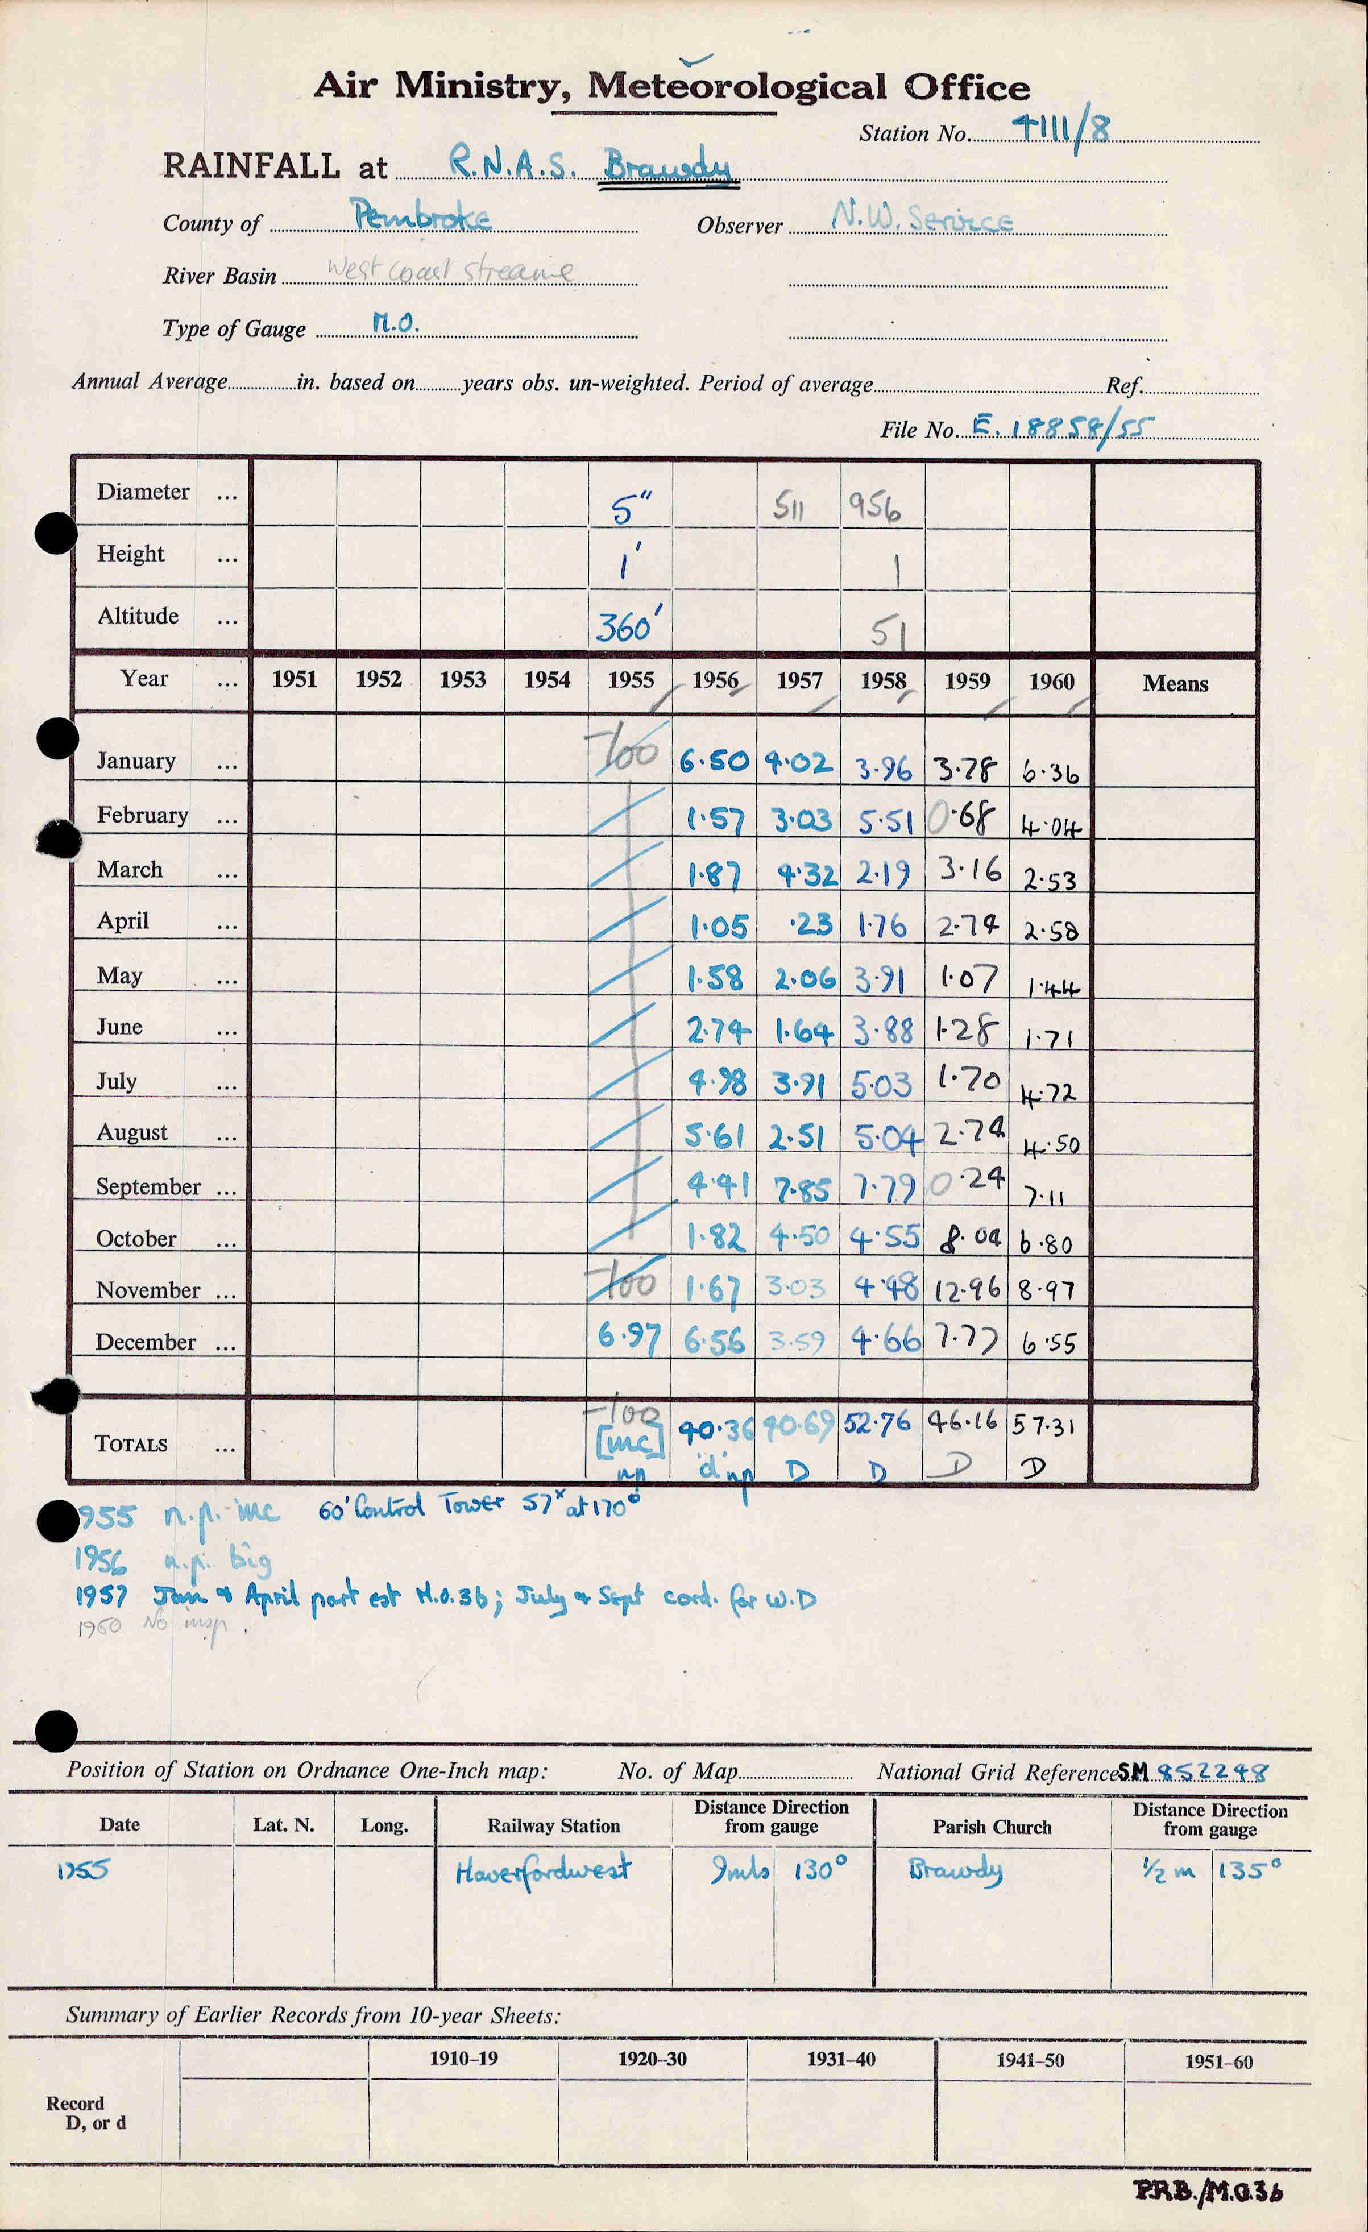 Air Ministry, Meteorological Office
Station No. 4111/8
RAINFALL at R.N.A.S. Brawdy
County of Pembroke Observer N.W. Service
River Basin West Coast Streams
Type of Gauge M.O.
Annual Average in. based on years obs. un-weighted. Period of average Ref.
File No. E. 18858/55
Diameter ... 5" 511 956
Height ... 1' 1
Altitude ... 360' 51
Year ... 1951 1952 1953 1954 1955 1956 1957 1958 1959 1960 Means
January ... -100 6.50 4.02 3.96 3.78 6.36
February ... 1.57 3.03 5.51 0.68 4.04
March ... 1.87 4.32 2.19 3.16 2.53
April ... 1.05 .23 1.76 2.74 2.58
May ... 1.58 2.06 3.91 1.07 1.44
June ... 2.74 1.64 3.88 1.28 1.71
July ... 4.98 3.91 5.03 1.70 4.72
August ... 5.61 2.51 5.04 2.74 4.50
September ... 4.41 7.85 7.79 0.24 7.11
October ... 1.82 4.50 4.55 8.04 6.80
November ... -100 1.67 3.03 4.48 12.96 8.97
December ... 6.97 6.56 3.59 4.66 7.77 6.55
-100
TOTALS ... [inc] 40.36 40.69 52.76 46.16 57.31
np 'd'np D D D D
1955 n.p. inc 60' Control Tower 57ˣ at 170°
1956 n.p. big
1957 Jan & April part est M.O.3b; July & Sept cord. for W.D
1960 No insp.
Position of Station on Ordnance One-Inch map: No. of Map National Grid Reference SM 852248
Date Lat. N. Long. Railway Station Distance Direction from gauge Parish Church Distance Direction from gauge
1955 Haverfordwest 9mls 130° Brawdy ½ m 135°
Summary of Earlier Records from 10-year Sheets:
1910–19 1920–30 1931–40 1941–50 1951–60
Record
D, or d
P.R.B./M.O.3b